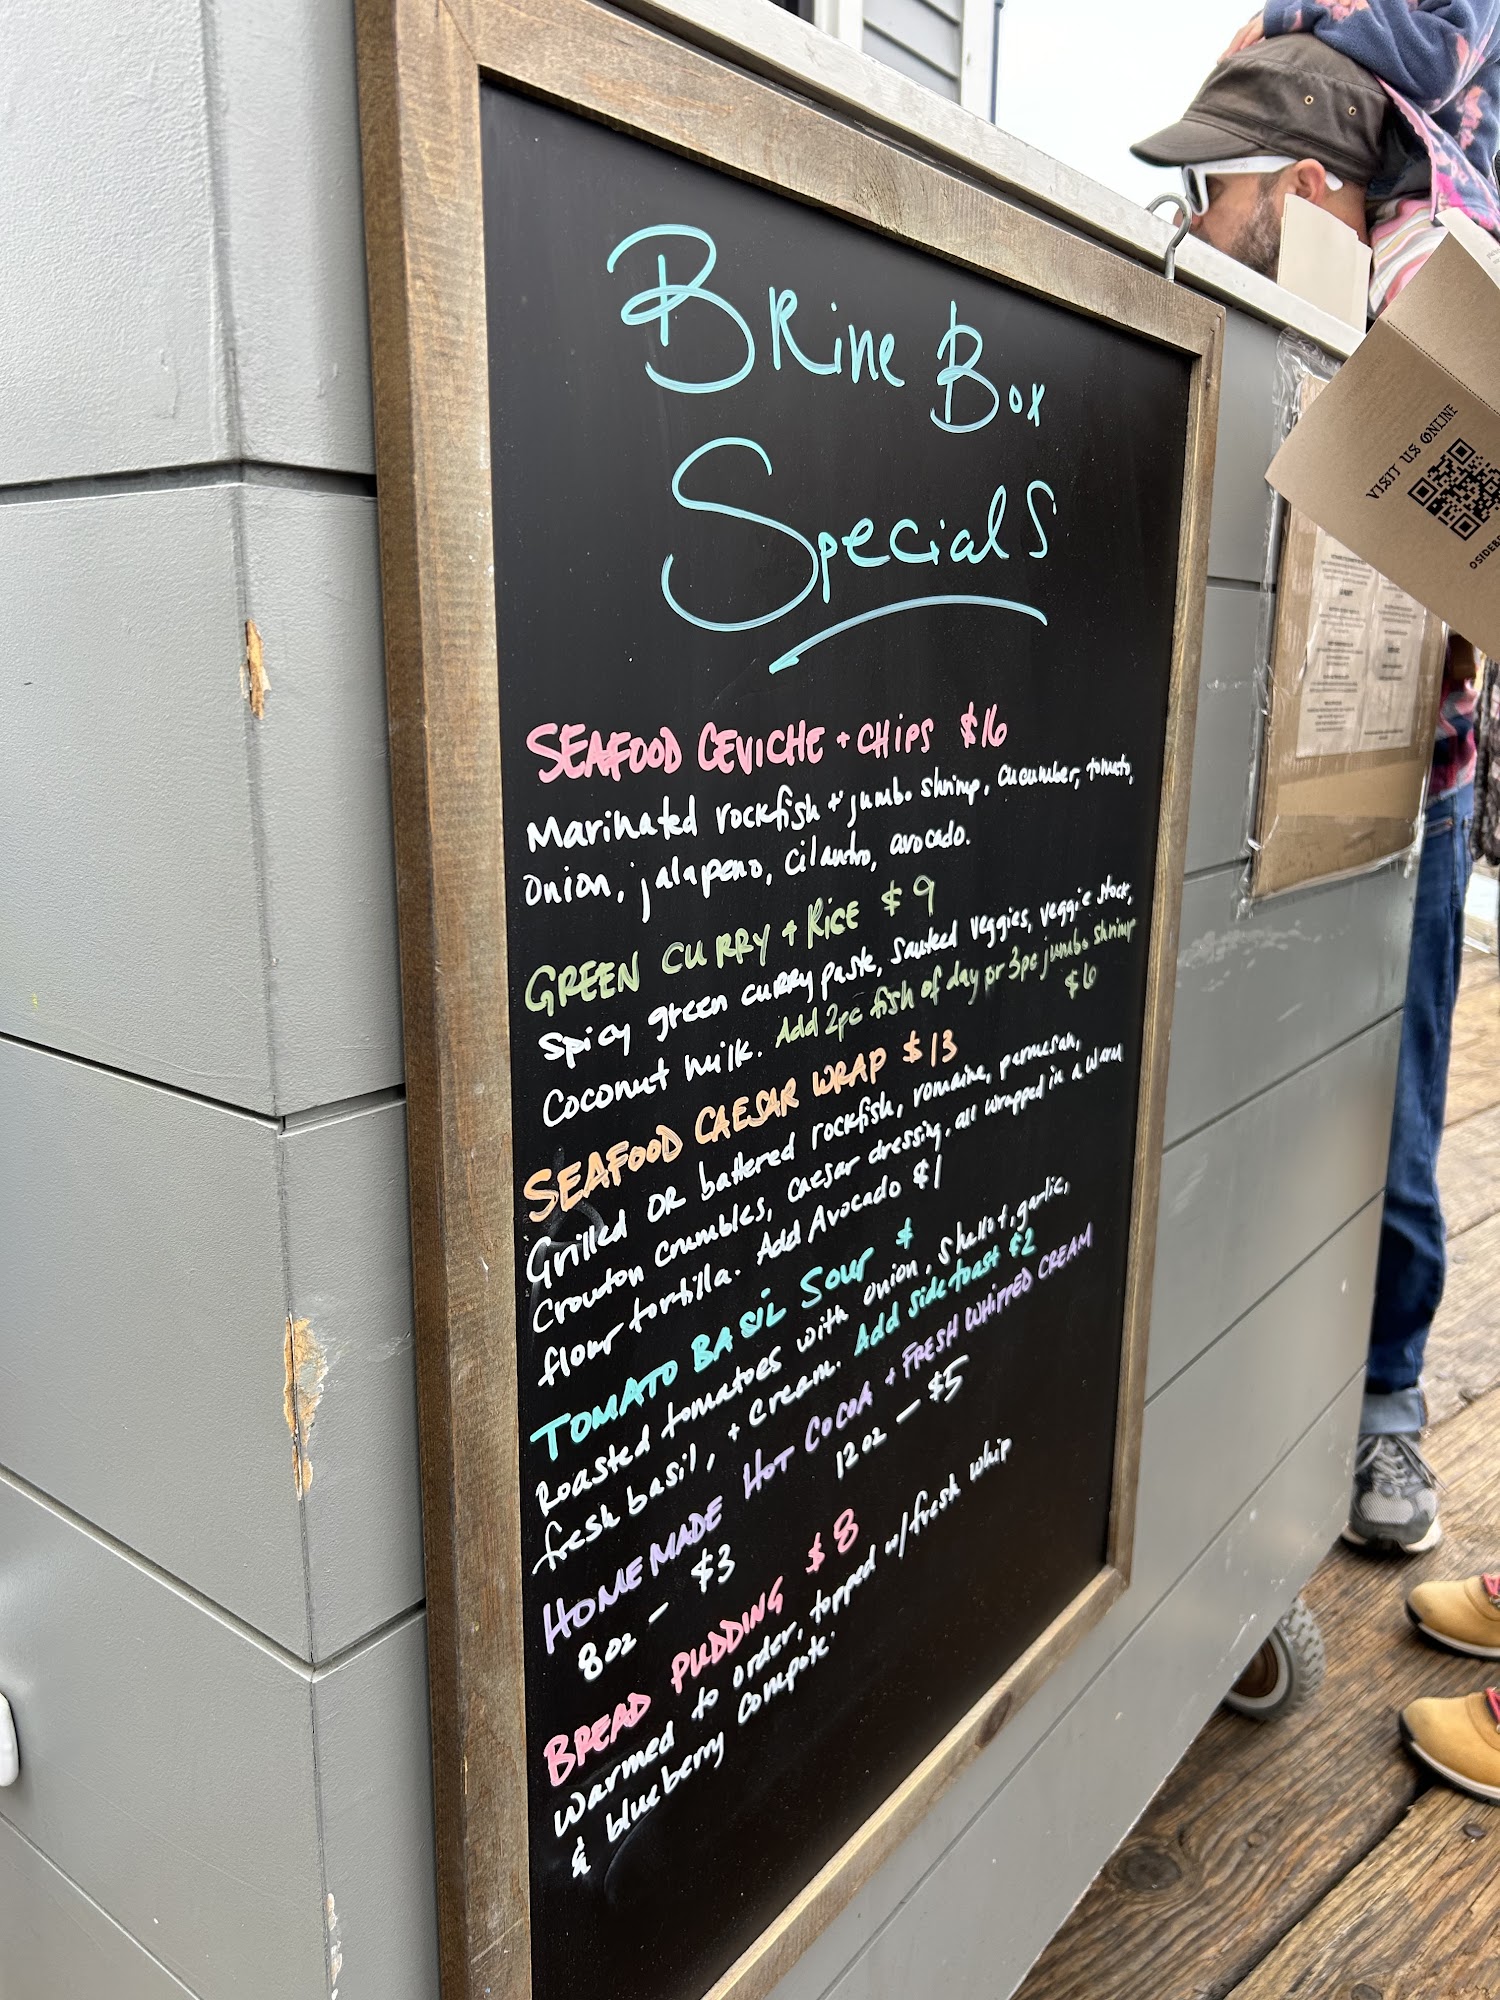 BRine Box
Specials
SEAFOOD CEVICHE + CHIPS $16
Marinated rockfish + jumbo shrimp, cucumber, tomato,
onion, jalapeno, cilantro, avocado.
GREEN CURRY + RICE $9
Spicy green curry paste, sauteed veggies, veggie stock,
Coconut milk. Add 2pc fish of day or 3pc jumbo shrimp
$6
SEAFOOD CAESAR WRAP $13
Grilled OR battered rockfish, romaine, parmesan,
Crouton crumbles, caesar dressing, all wrapped in a warm
flour tortilla. Add Avocado $1
TOMATO BASIL SOUP $
Roasted tomatoes with onion, shallot, garlic,
fresh basil, + cream. Add side toast $2
HOMEMADE HOT COCOA + FRESH WHIPPED CREAM
8oz - $3 12oz - $5
BREAD PUDDING $8
Warmed to order, topped w/fresh whip
& blueberry compote.
VISIT US ONLINE